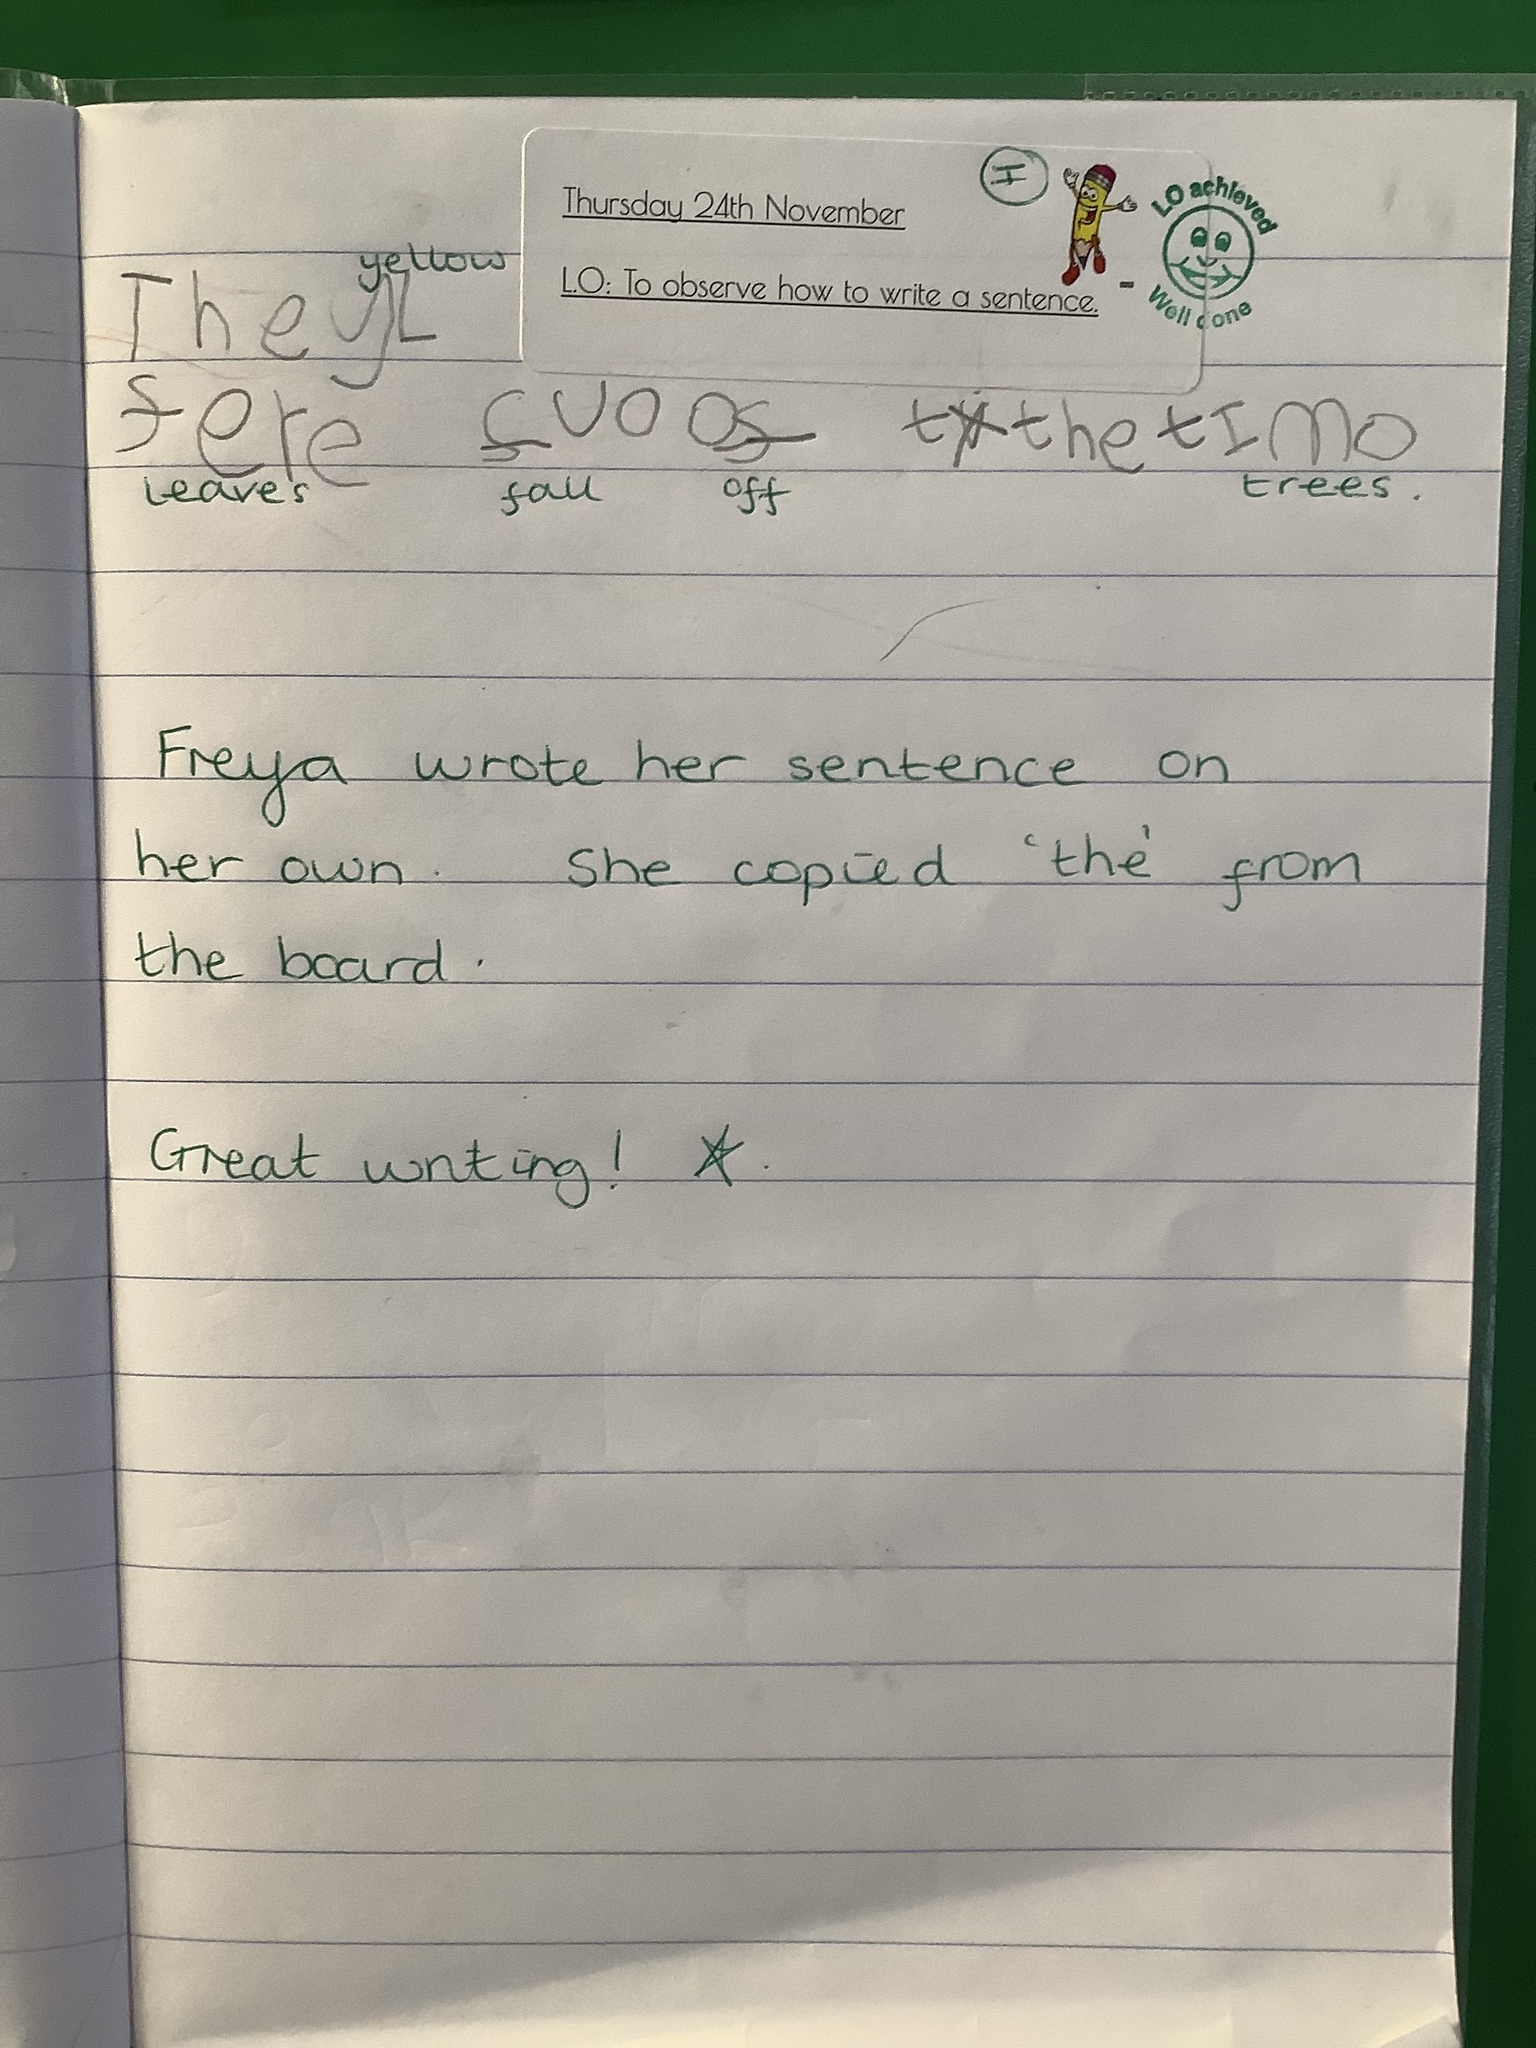 Thursday 24th November
I
LO achieved
Well done
L.O: To observe how to write a sentence.
yellow
The yL
fere fuo of t the tImo
leaves fall off trees.
Freya wrote her sentence on
her own. She copied 'the' from
the board.
Great writing!